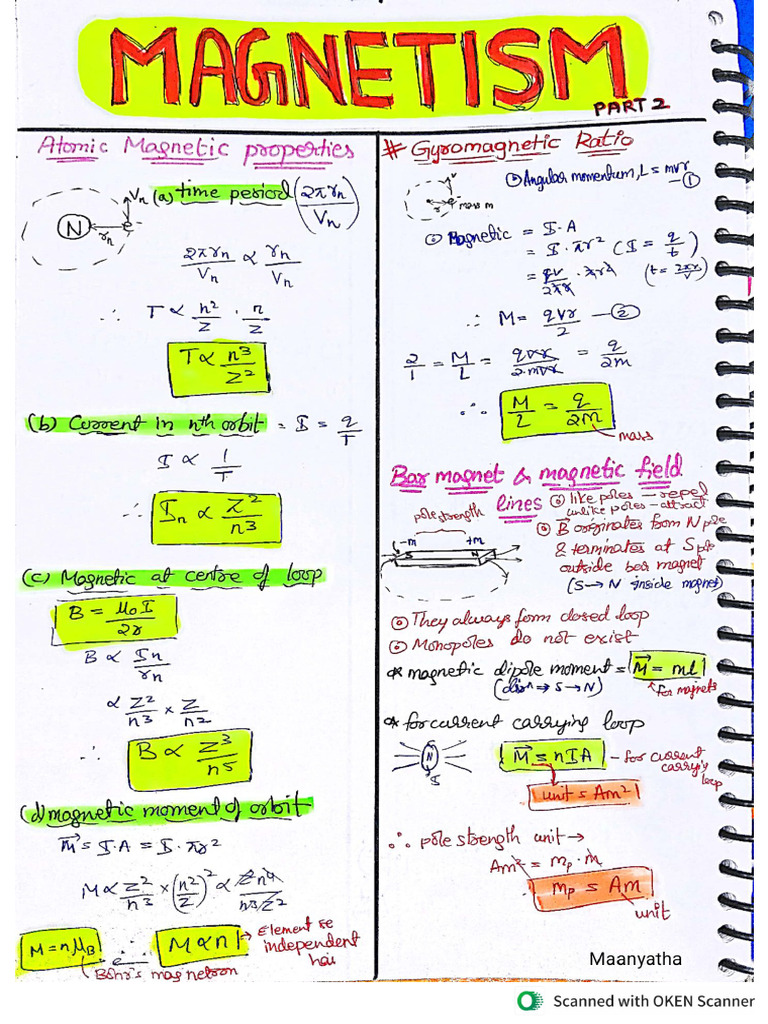 MAGNETISM
PART 2
Atomic Magnetic properties
N
rn
e-
Vn
(a) time period (2πrn/Vn)
2πrn/Vn ∝ rn/Vn
∴ T ∝ n²/Z · n/Z
T ∝ n³/Z²
(b) Current in nth orbit = I = q/T
I ∝ 1/T
∴ In ∝ Z²/n³
(c) Magnetic at centre of loop
B = μ0I/2r
B ∝ In/rn
∝ Z²/n³ × Z/n2
∴ B ∝ Z³/n5
(d) magnetic moment of orbit
M⃗ = I·A = I·πr²
M ∝ Z²/n³ × (n²/Z)² ∝ Z²n⁴/n³Z²
M = nμB ∴ M ∝ n → Element se
independent
hai
Bohr's magnetron
# Gyromagnetic Ratio
v
r
mass m
Angular momentum, L = mvr — ①
Magnetic = I·A
= I·πr² (I = q/t)
= qv/2πr · πr² (t = 2πr/v)
∴ M = qvr/2 — ②
2/1 = M/L = qvr/2·mvr = q/2m
∴ M/L = q/2m
mass
Bar magnet & magnetic field
lines
like poles — repel
unlike poles – attract
B⃗ originates from N pole
& terminates at S pole
outside bar magnet
(S → N inside magnet)
pole strength
-m +m
S N
They always form closed loop
Monopoles do not exist
* magnetic dipole moment = M⃗ = ml
(dirⁿ ⇒ S → N)
for magnets
* for current carrying loop
N
I
M⃗ = nIA – for current
carry'g
loop
unit = Am²
∴ pole strength unit →
Am² = mp · m
mp = Am
unit
Maanyatha
Scanned with OKEN Scanner